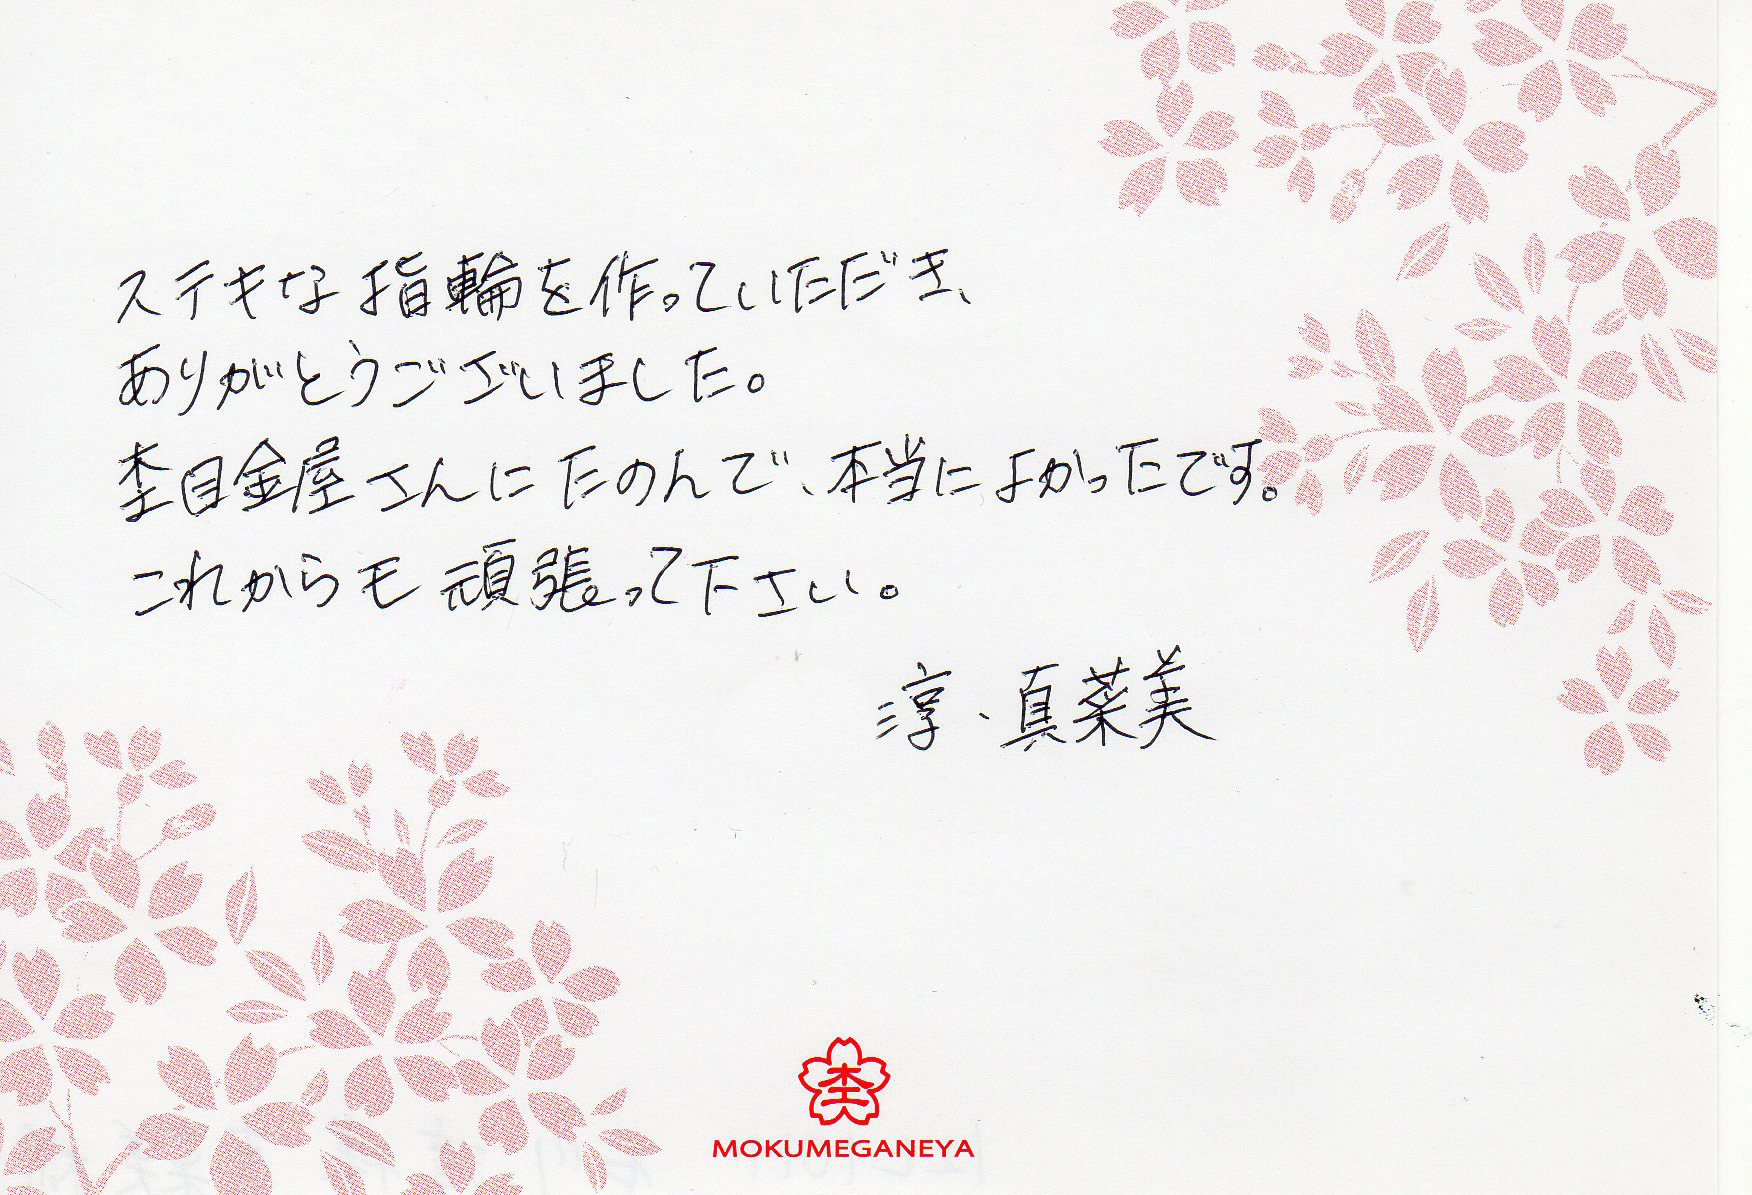 ステキな指輪を作っていただき、
ありがとうございました。
杢目金屋さんにたのんで、本当によかったです。
これからも頑張って下さい。
淳・真菜美
杢
MOKUMEGANEYA